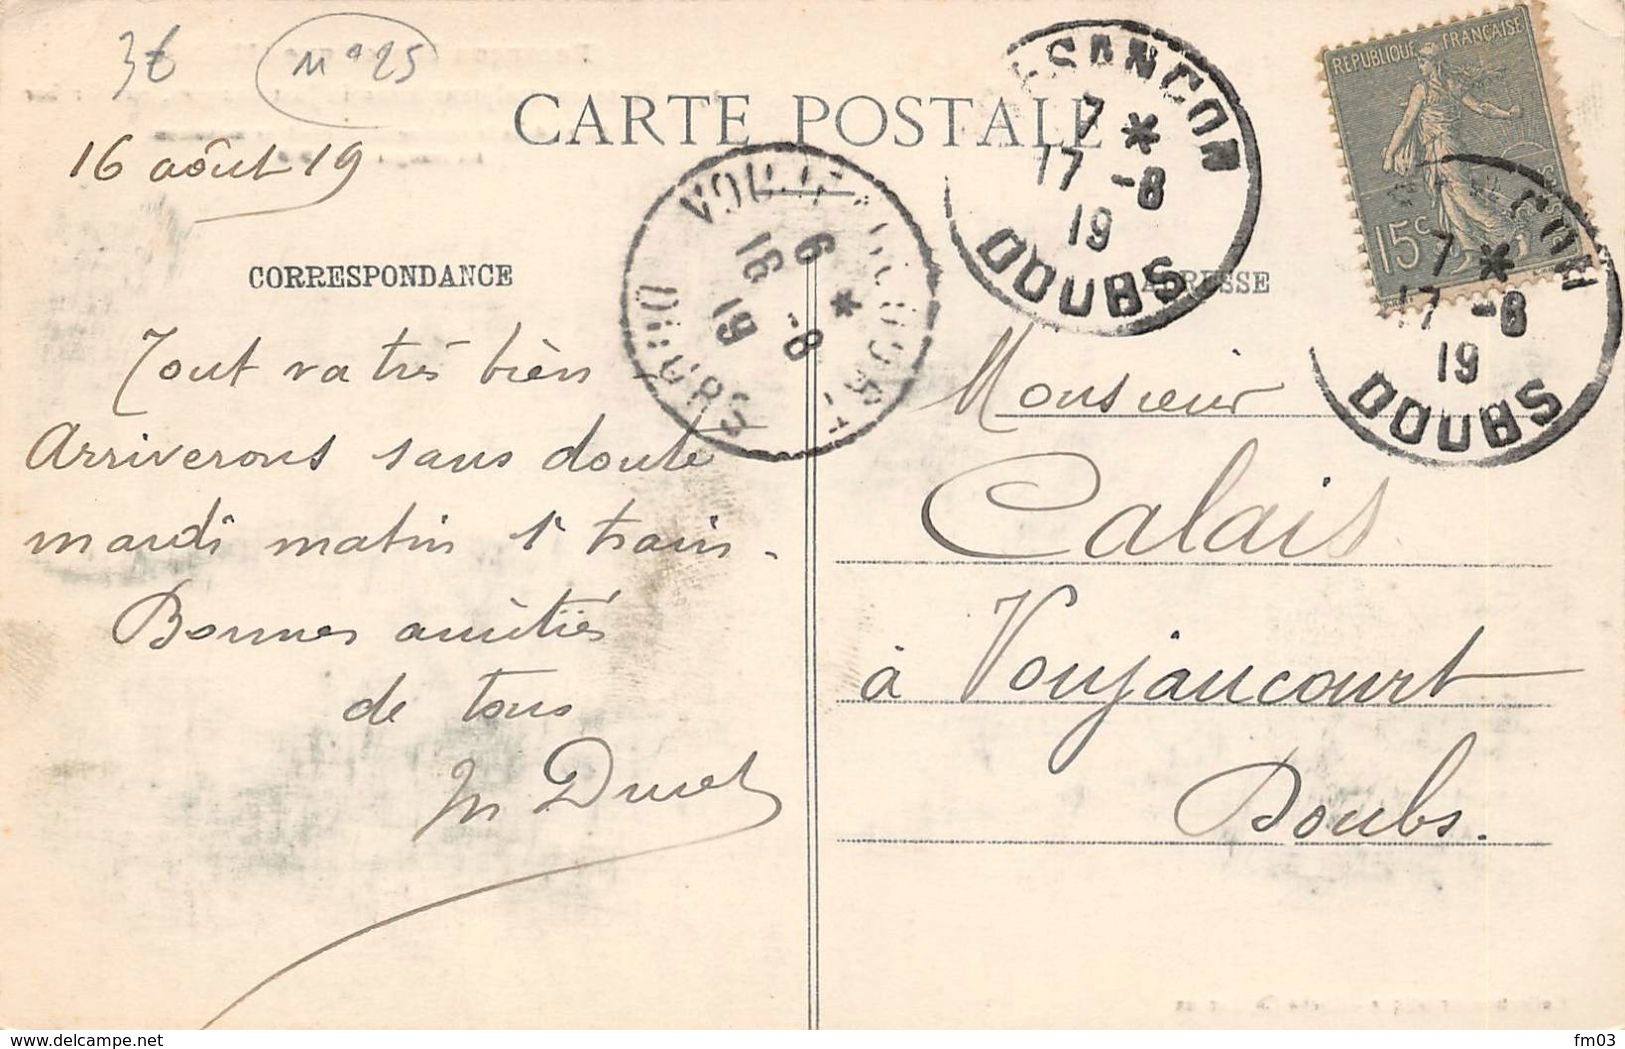 3€
N° 25
CARTE POSTALE
16 août 19
CORRESPONDANCE
ADRESSE
Tout va très bien
Arriverons sans doute
mardi matin 1r train.
Bonnes amitiés
de tous
Monsieur
Calais
à Voujaucourt
Doubs.
REPUBLIQUE FRANÇAISE
15c
BESANCON
7 *
17 -8
19
DOUBS
7 *
17 -8
19
DOUBS
VOUJEAUCOURT
6 *
18 -8
19
DOUBS
delcampe.net
fm03